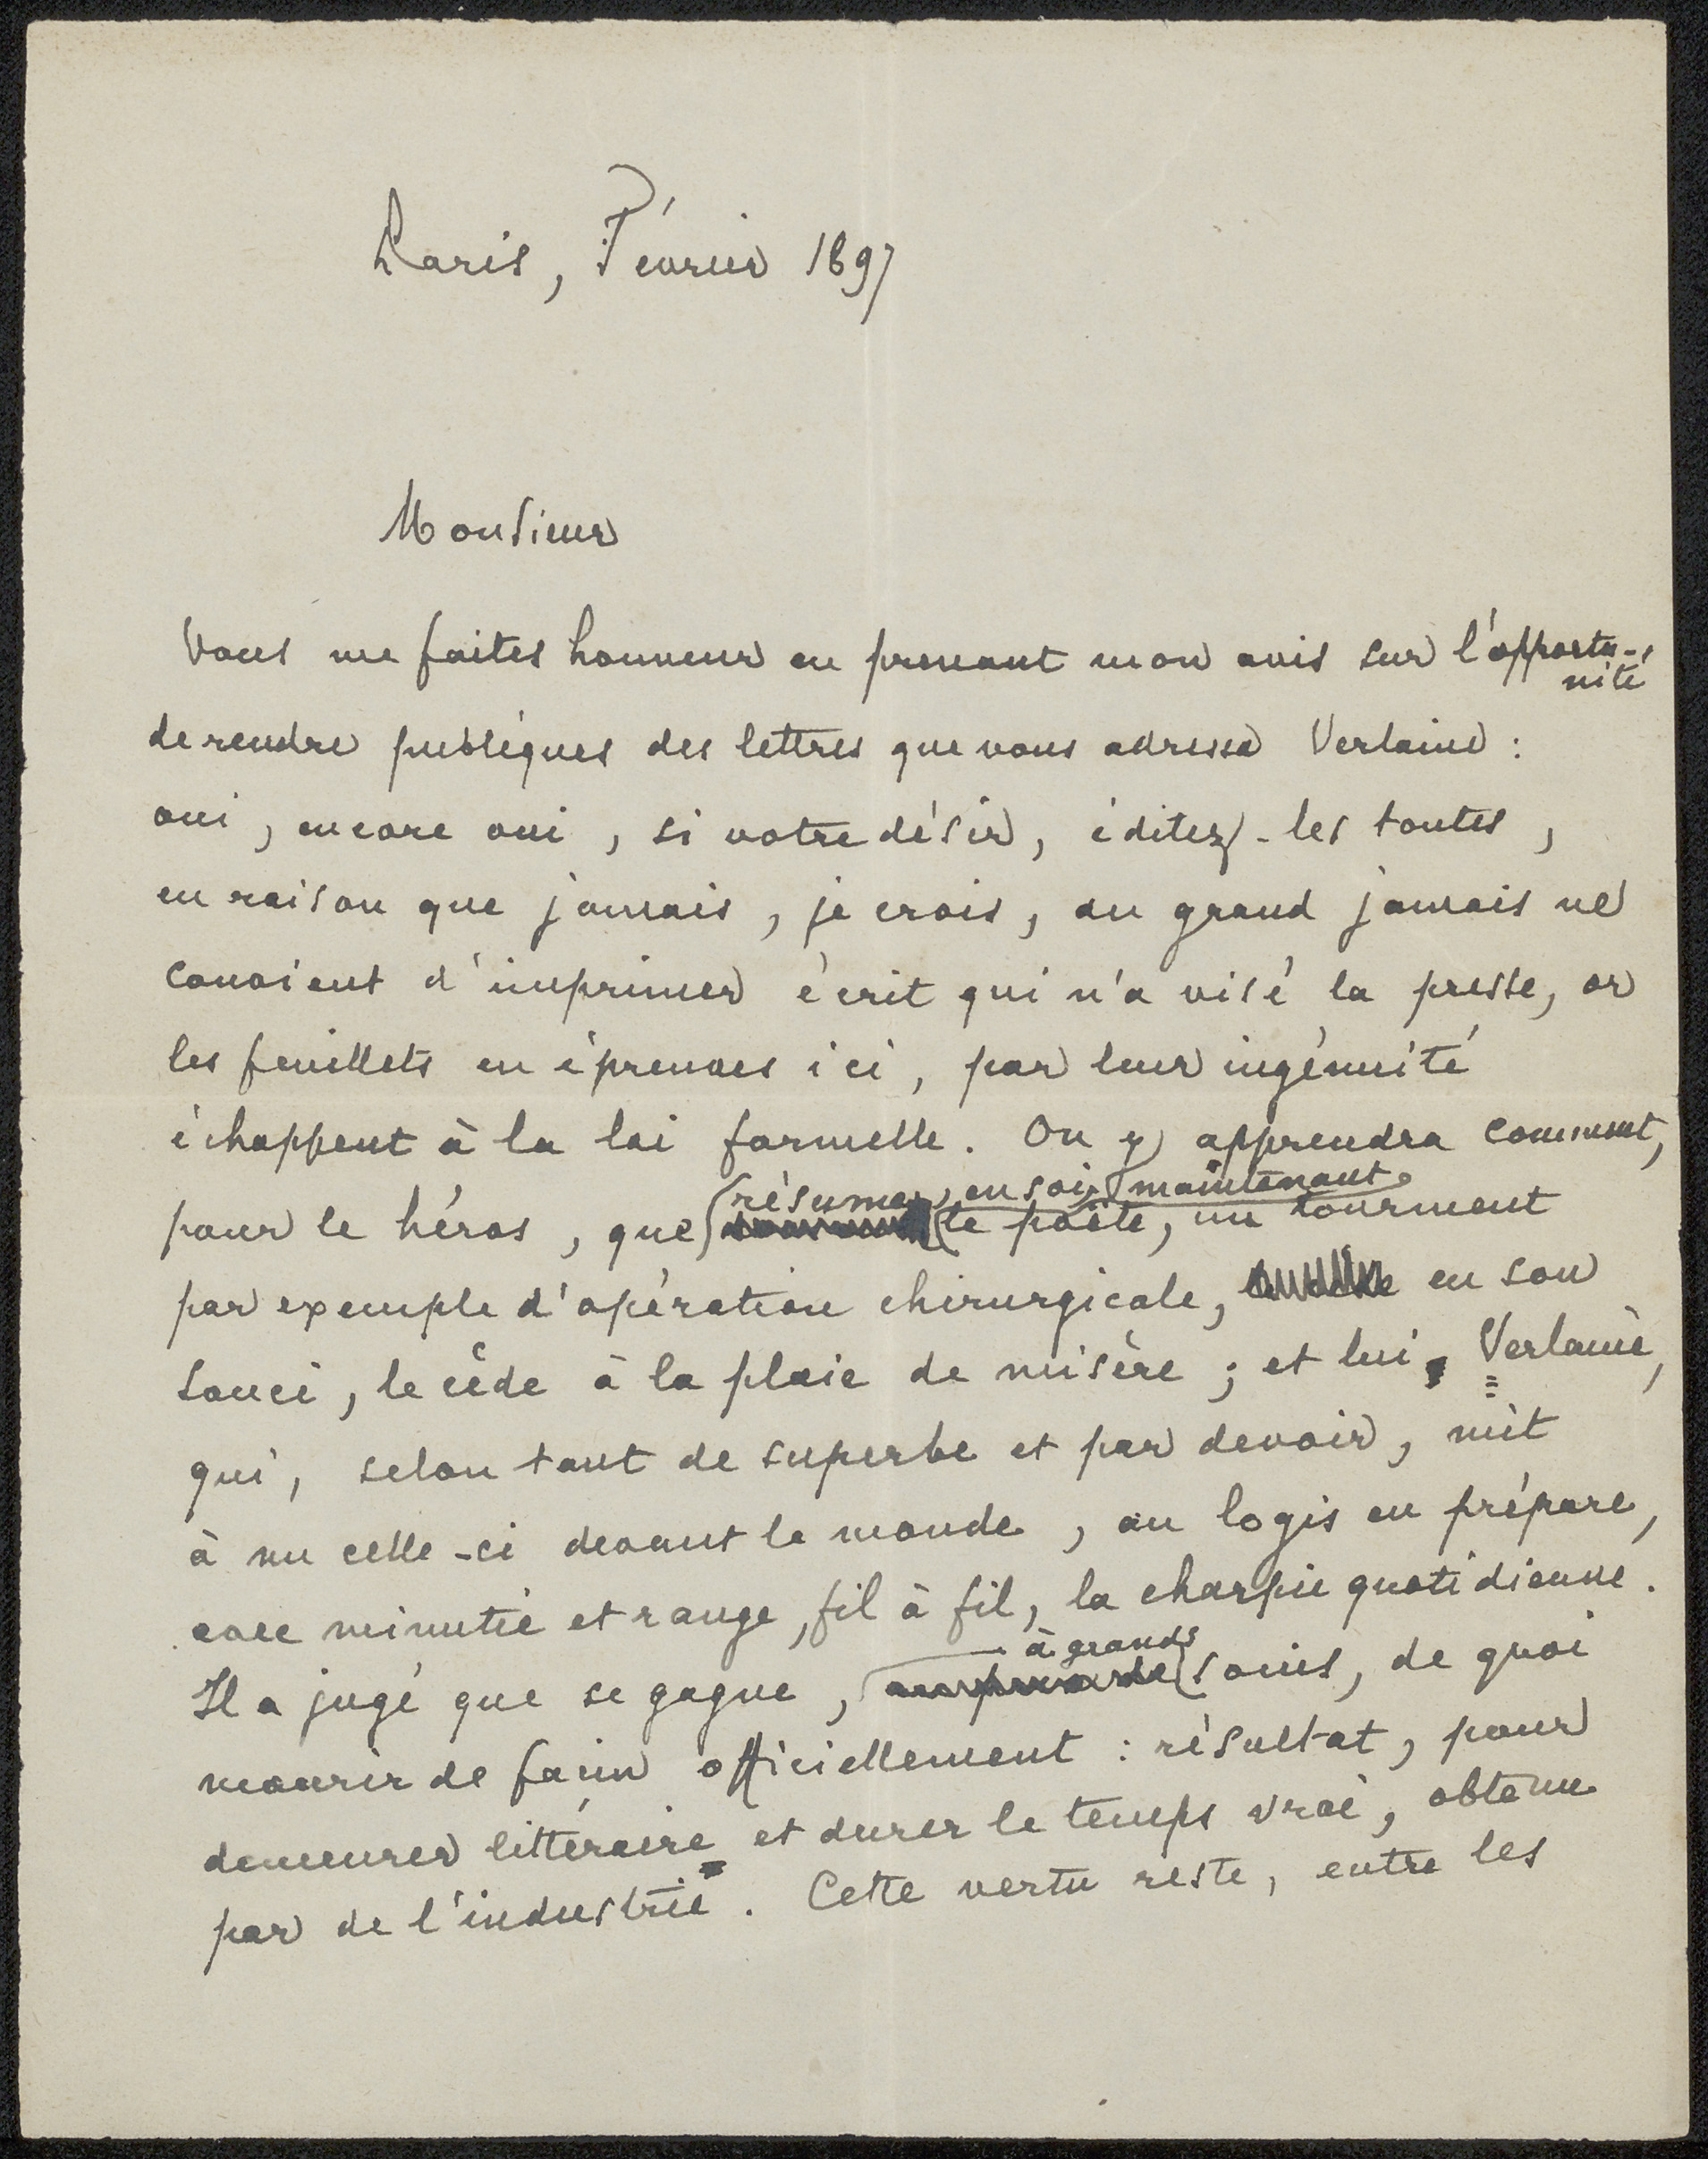 Paris, Février 1897
Monsieur
Vous me faites honneur en prenant mon avis sur l'opportu-
nité
de rendre publiques des lettres que vous adressa Verlaine :
oui, encore oui, si votre désir, éditez-les toutes,
en raison que jamais, je crois, au grand jamais ne
convient d'imprimer écrit qui n'a visé la presse, or
les feuillets en épreuves ici, par leur ingénuité
échappent à la loi formelle. On y apprendra comment,
résuma, en soi, maintenant
pour le héros, que le poëte, un tourment
par exemple d'opération chirurgicale, en son
souci, le cède à la plaie de misère ; et lui, Verlaine,
qui, selon tant de superbe et par devoir, mit
à nu celle-ci devant le monde, au logis en prépare,
avec minutie et range, fil à fil, la charpie quotidienne.
à grands
Il a jugé que se gagne, soins, de quoi
mourir de faim officiellement : résultat, pour
demeurer littéraire et durer le temps vrai, obtenu
par de l'industrie. Cette vertu reste, entre les